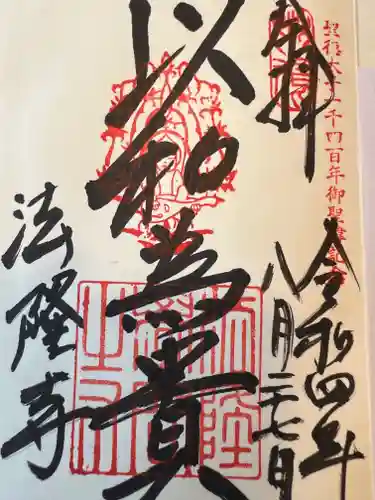 奉拝
聖徳太子一千四百年御聖諱記念
令和四年
八月二十七日
以和為貴
法隆寺